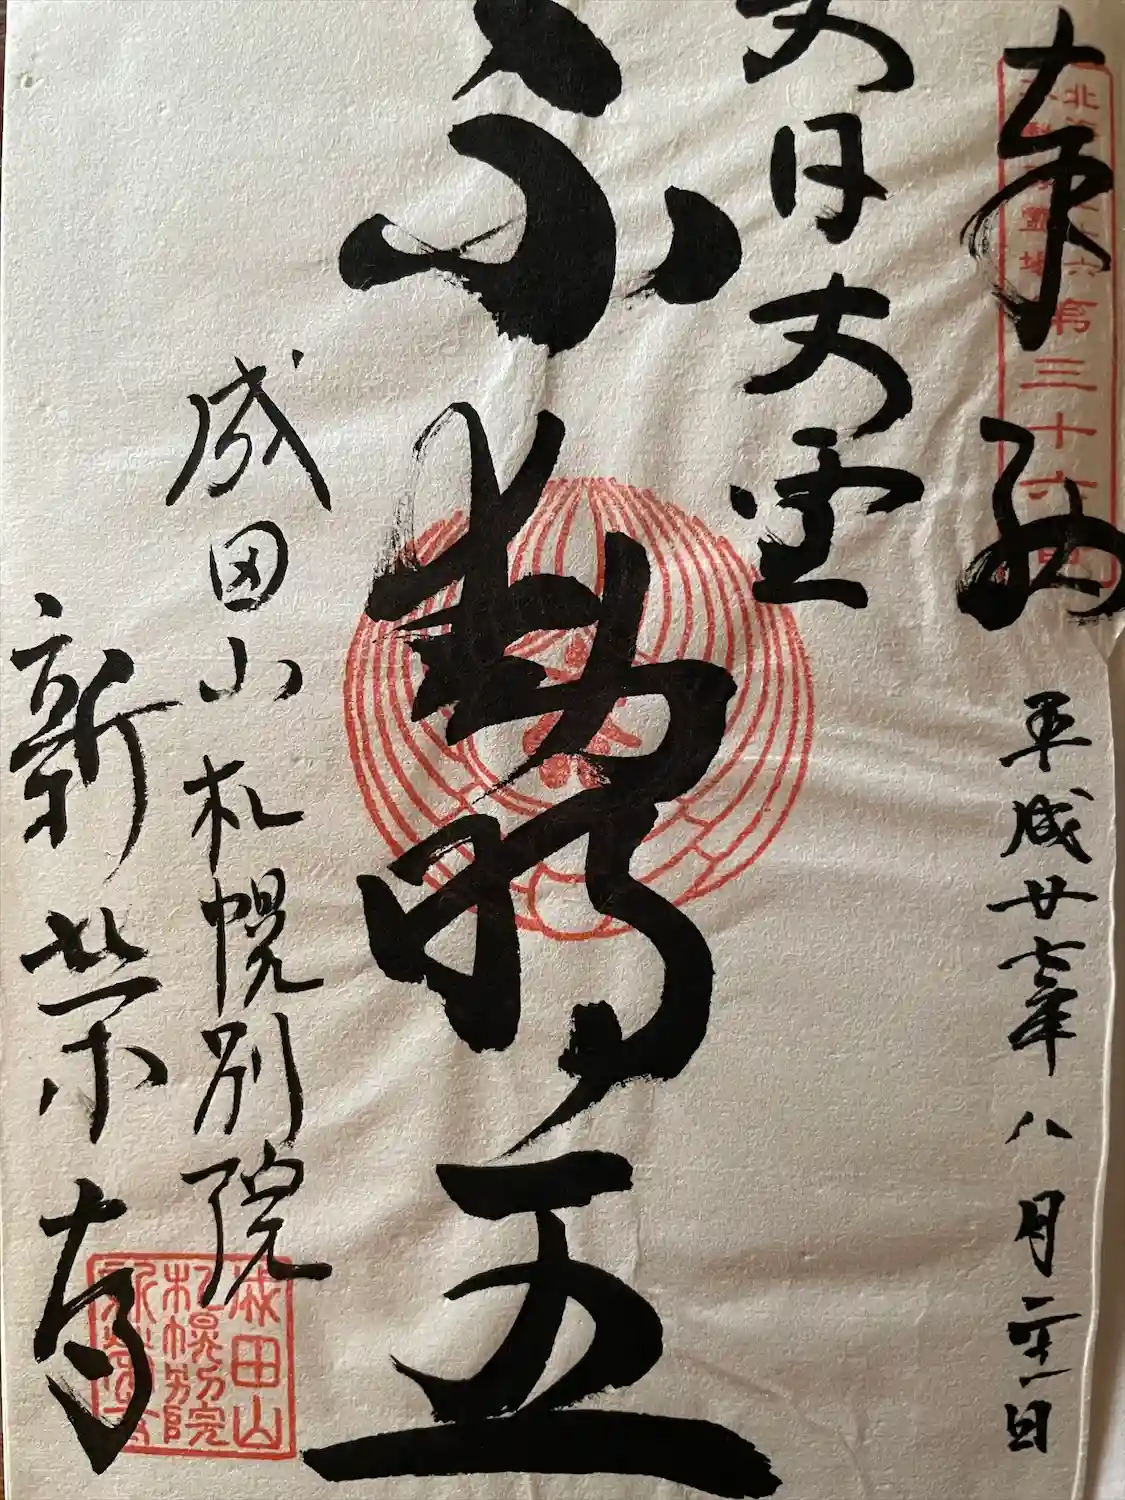 奉拝
平成廿七年八月二十一日
北海道三十六
不動尊霊場
第三十六番
大日大聖
不動明王
成田山札幌別院
新栄寺
成田山
札幌別院
新栄寺